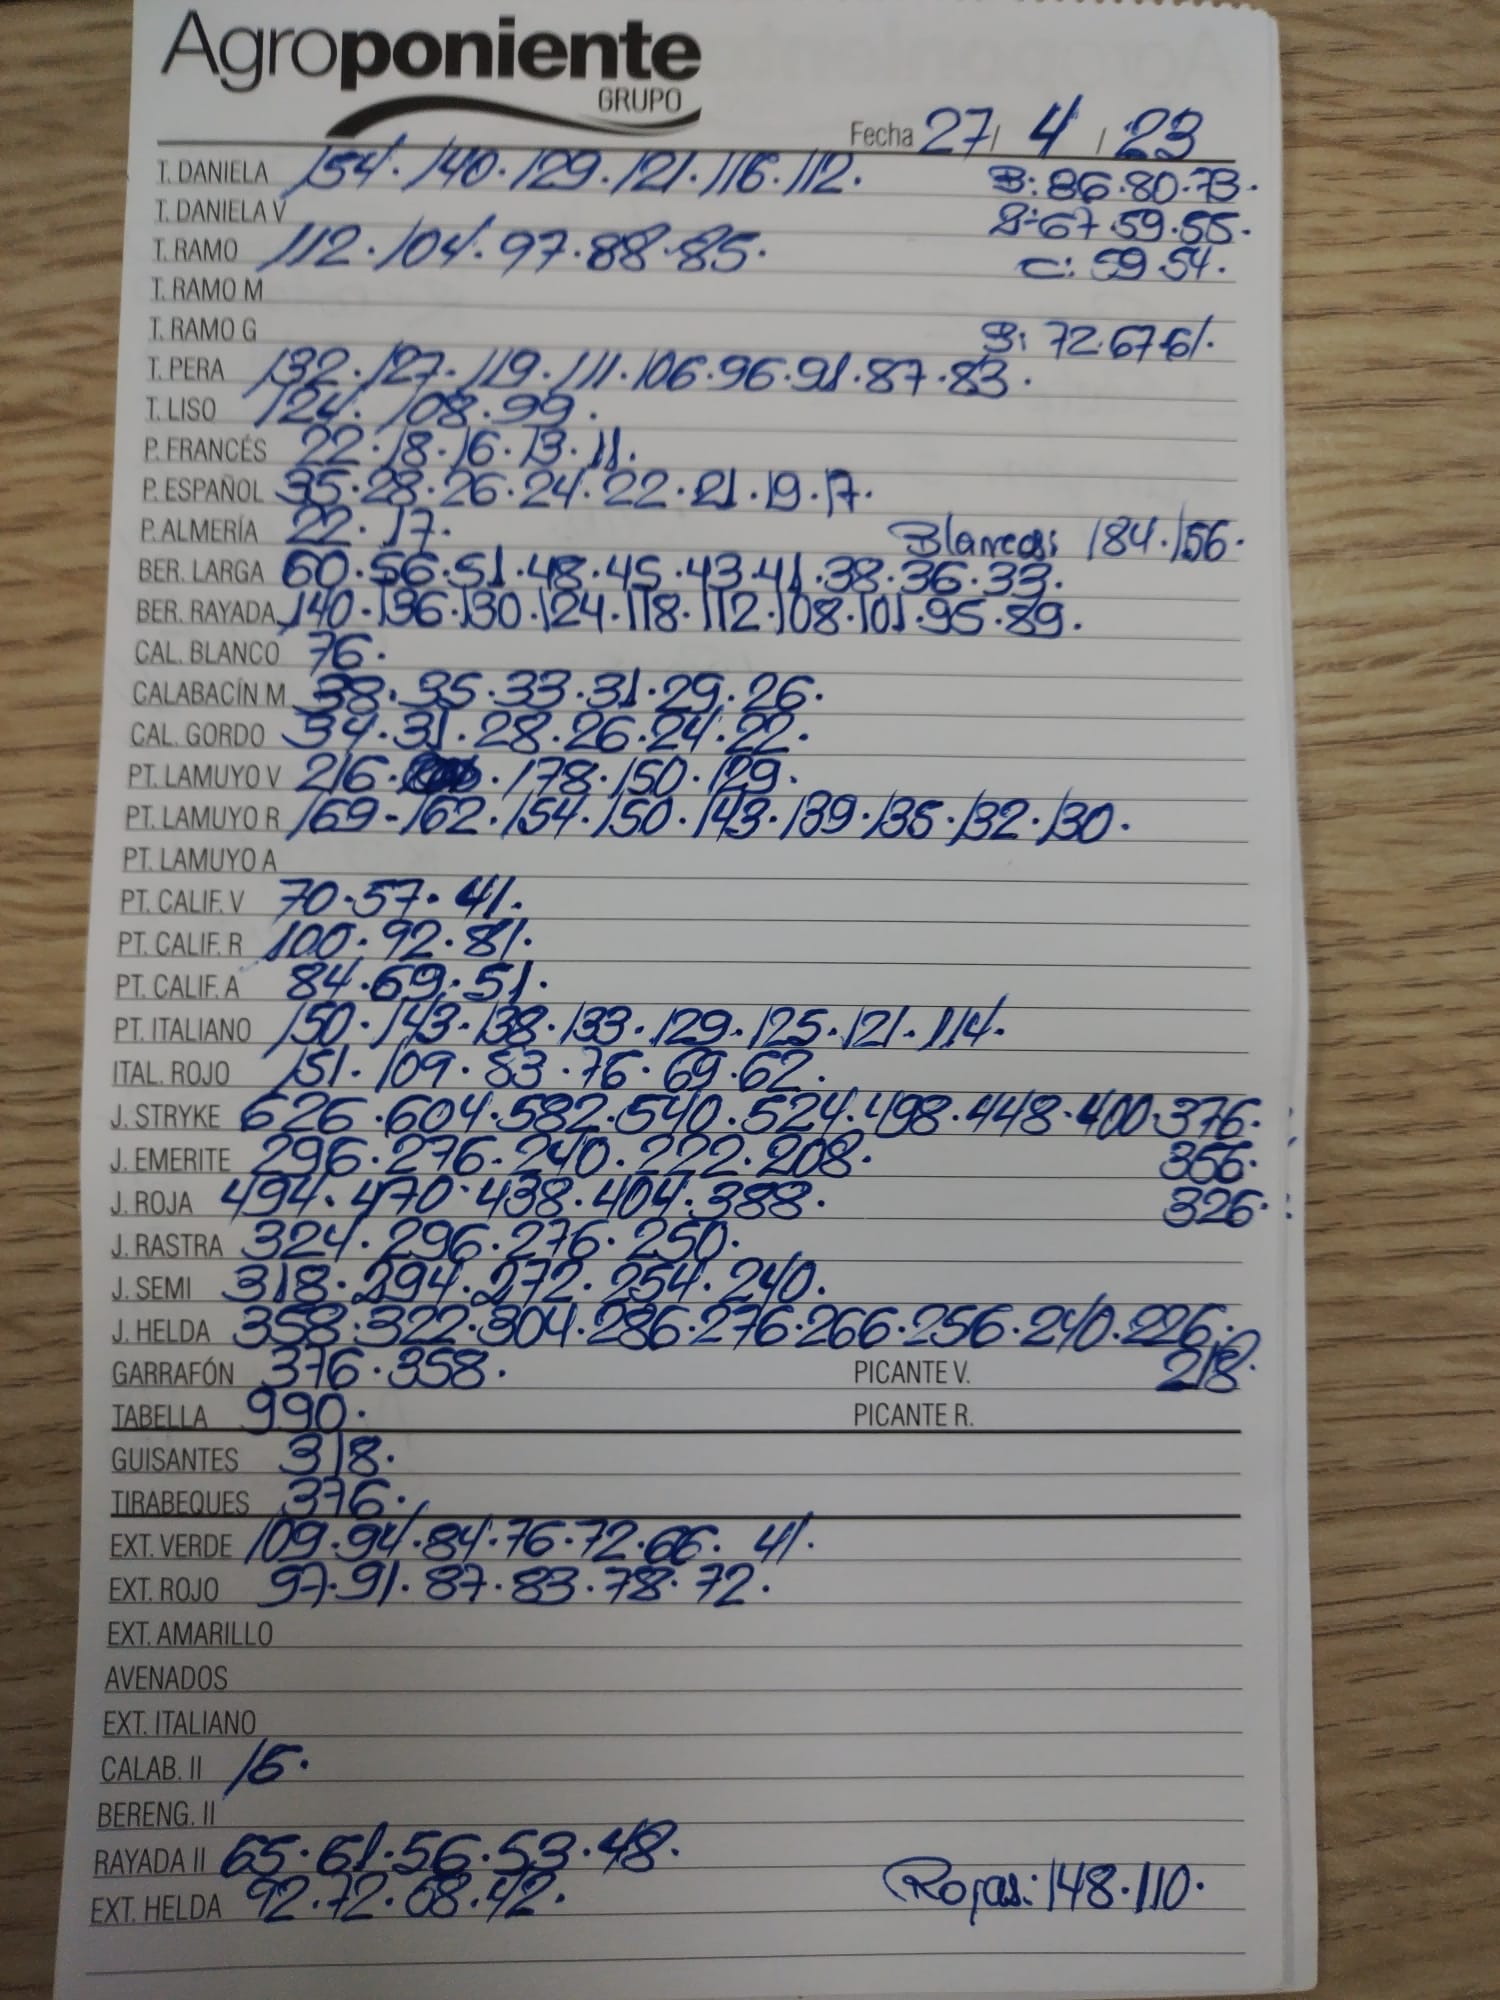 Agroponiente
GRUPO
Fecha 27/ 4 / 23
T. DANIELA 154. 140. 129. 121. 116. 112. B: 86. 80. 73.
T. DANIELA V 67. 59. 55.
T. RAMO 112. 104. 97. 88. 85. C: 59. 54.
T. RAMO M
T. RAMO G B: 72. 67. 61.
T. PERA 132. 127. 119. 111. 106. 96. 91. 87. 83.
T. LISO 124. 108. 99.
P. FRANCÉS 22. 18. 16. 13. 11.
P. ESPAÑOL 35. 28. 26. 24. 22. 21. 19. 17.
P. ALMERÍA 22. 17. Blancas: 184. 156.
BER. LARGA 60. 56. 51. 48. 45. 43. 41. 38. 36. 33.
BER. RAYADA 140. 136. 130. 124. 118. 112. 108. 101. 95. 89.
CAL. BLANCO 76.
CALABACÍN M 38. 35. 33. 31. 29. 26.
CAL. GORDO 34. 31. 28. 26. 24. 22.
PT. LAMUYO V 216. 178. 150. 129.
PT. LAMUYO R 169 - 162. 154. 150. 143. 139. 135. 132. 130.
PT. LAMUYO A
PT. CALIF. V 70. 57. 41.
PT. CALIF. R 100. 92. 81.
PT. CALIF. A 84. 69. 51.
PT. ITALIANO 150. 143. 138. 133. 129. 125. 121. 114.
ITAL. ROJO 151. 109. 83. 76. 69. 62.
J. STRYKE 626. 604. 582. 540. 524. 498. 448. 400. 376.
J. EMERITE 296. 276. 240. 222. 208. 356.
J. ROJA 494. 470. 438. 404. 388. 326.
J. RASTRA 324. 296. 276. 250.
J. SEMI 318. 294. 272. 254. 240.
J. HELDA 358. 322. 304. 286. 276. 266. 256. 240. 226.
GARRAFÓN 376. 358. PICANTE V. 218.
TABELLA 990. PICANTE R.
GUISANTES 318.
TIRABEQUES 376.
EXT. VERDE 109. 94. 84. 76. 72. 66. 41.
EXT. ROJO 97. 91. 87. 83. 78. 72.
EXT. AMARILLO
AVENADOS
EXT. ITALIANO
CALAB. II 15.
BERENG. II
RAYADA II 65. 61. 56. 53. 48.
EXT. HELDA 92. 72. 68. 42. Rojas: 148. 110.